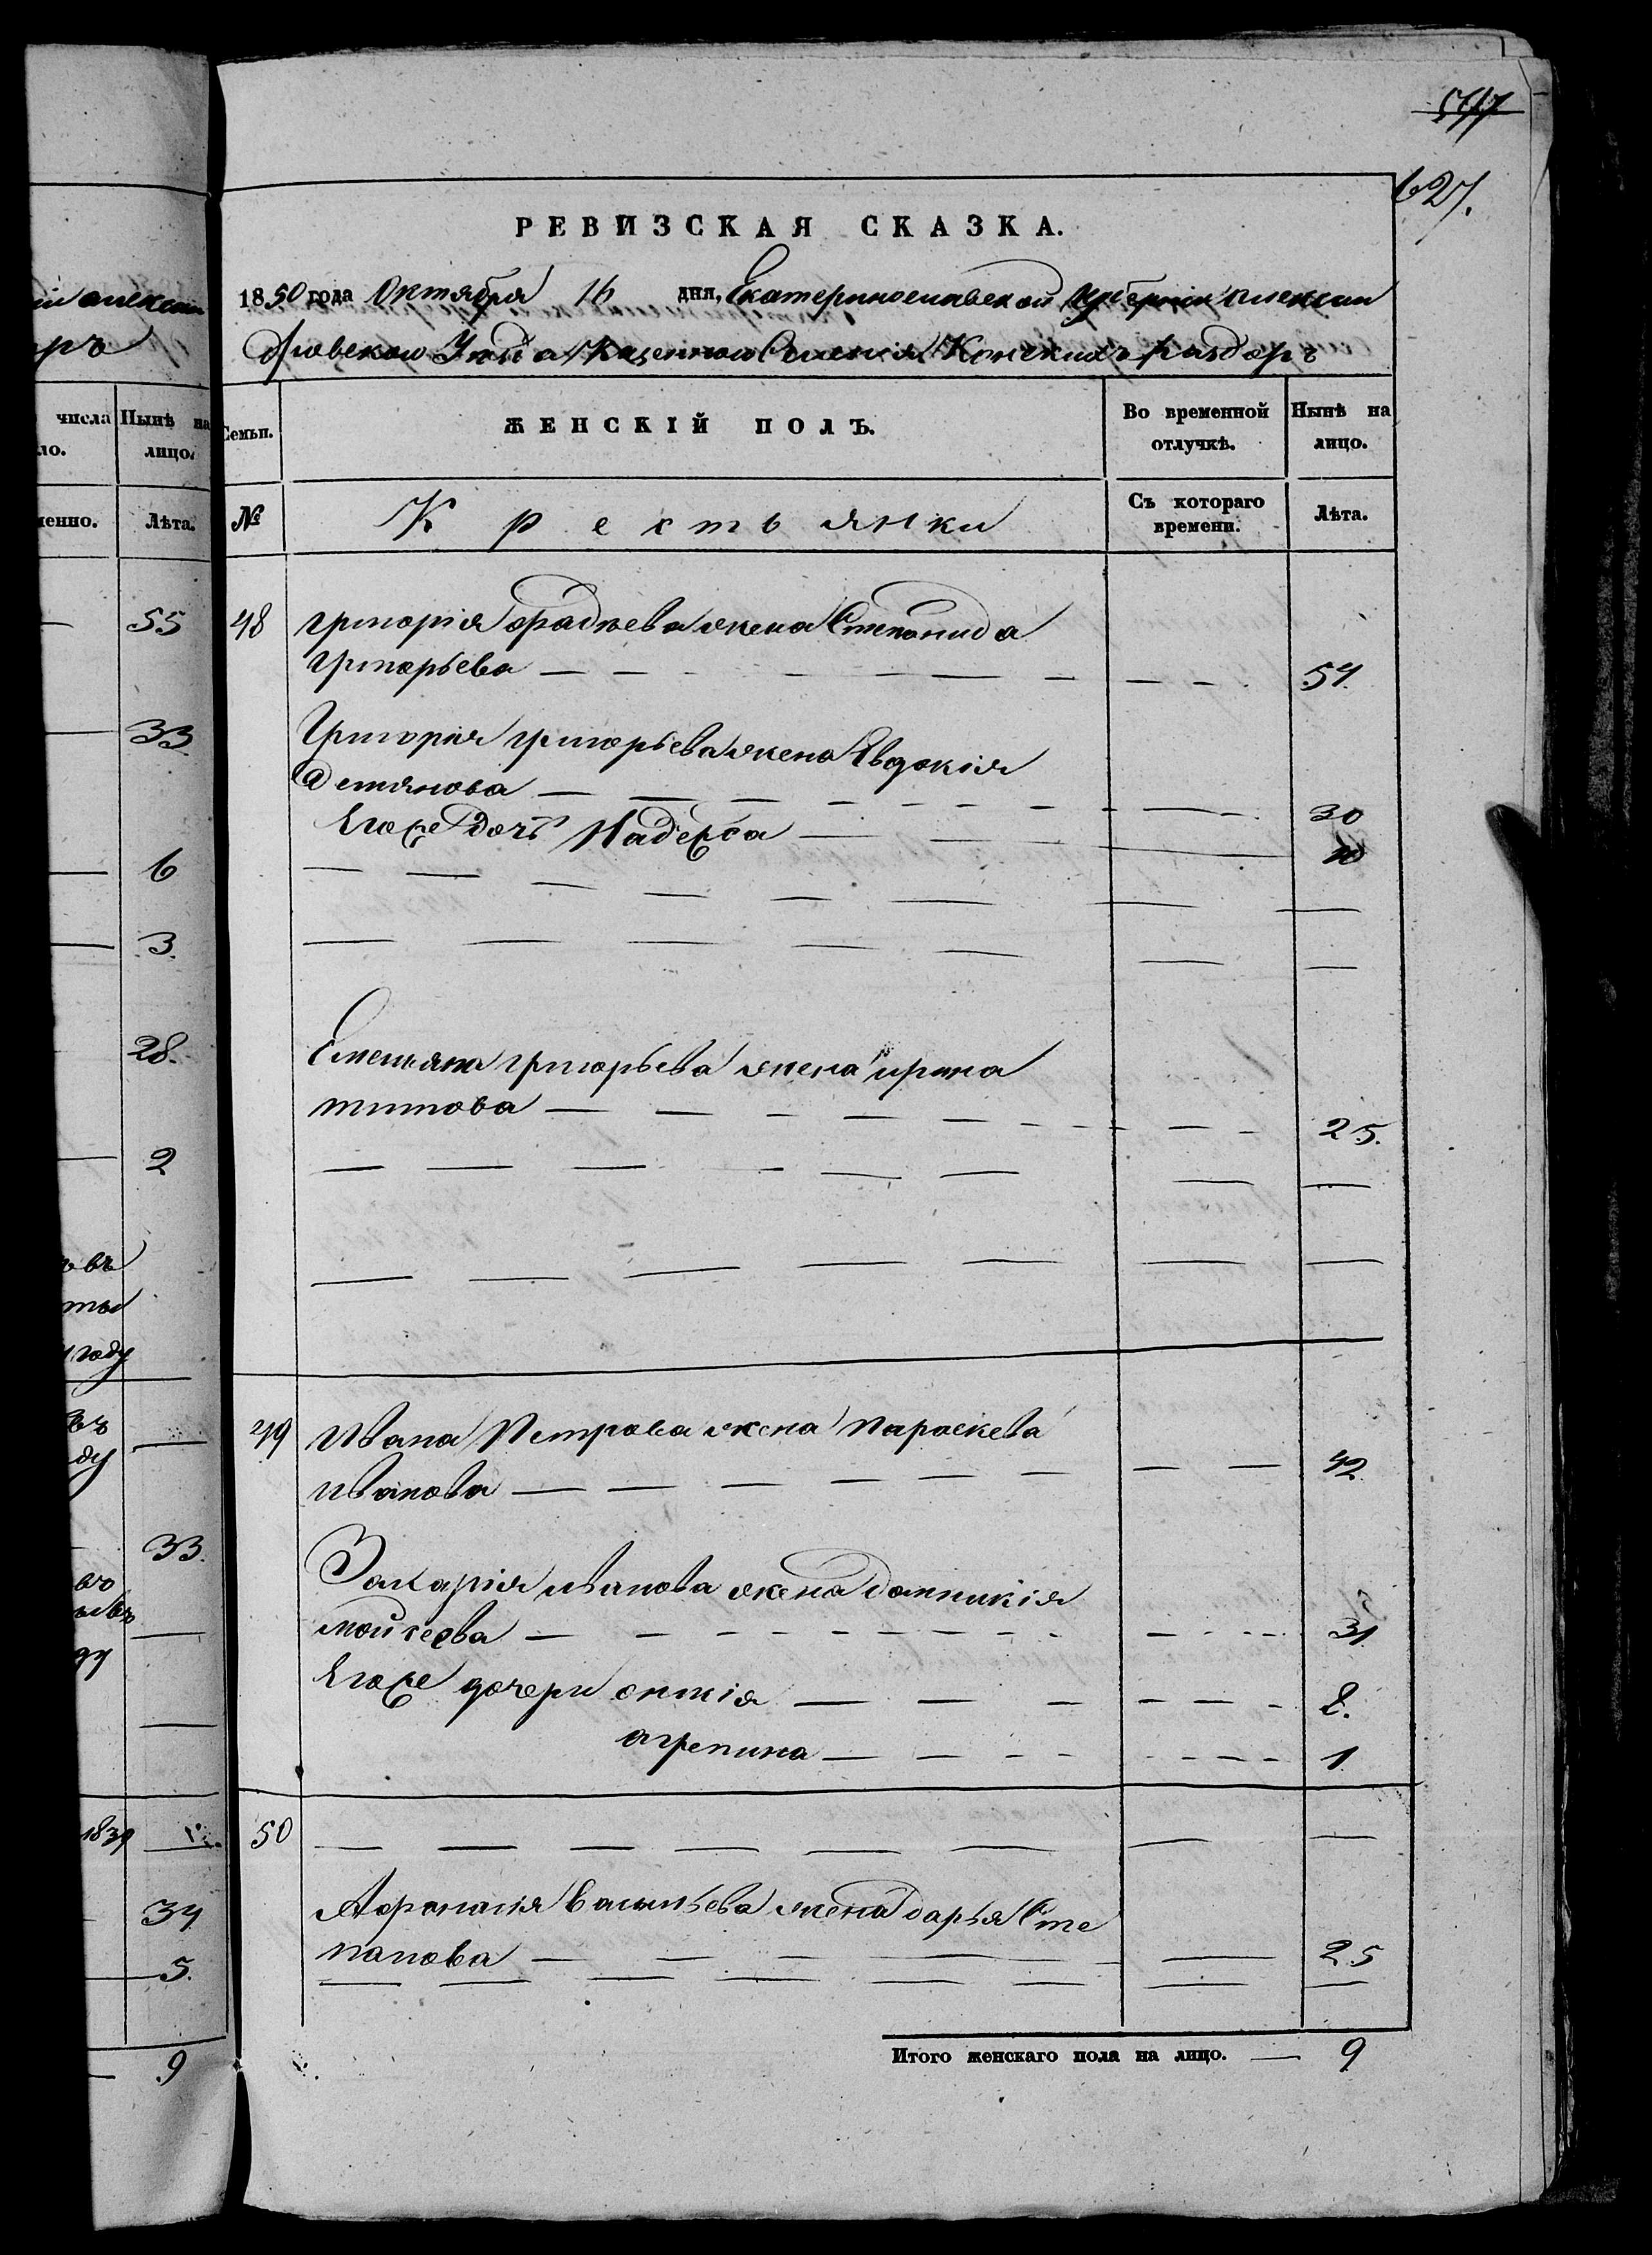 577
627.
ій Александ
ръ
числа
Нынѣ на
ло.
лицо.
менно.
Лѣта.
55
33.
6
3.
28.
2
въ
году
ду
33.
1839
34
5.
9
РЕВИЗСКАЯ СКАЗКА.
1850 года Октября 16 дня, Екатеринославской губерніи Александ
ровскаго Уѣзда Казеннаго Селенія Конскихъ раздоръ
Семьи.
ЖЕНСКІЙ ПОЛЪ.
Во временной отлучкѣ.
Нынѣ на лицо.
№
Крестьянки
Съ котораго времени.
Лѣта.
48 григорія фадѣева жена Степанида
григорьева — 54.
Григорія григорьева жена Евдокія
Демянова — 30
Егоже дочь Надежда — 10
Емельяна григорьева жена ирина
титова — 25.
49 Ивана Петрова жена Параскева
иванова — 42
Захарія иванова жена домникія
мойсеева — 31.
Егоже дочери — 8.
агрепина — 1
50
Афанасія Васильева жена дарья Сте
панова — 25
Итого женскаго пола на лицо. — 9